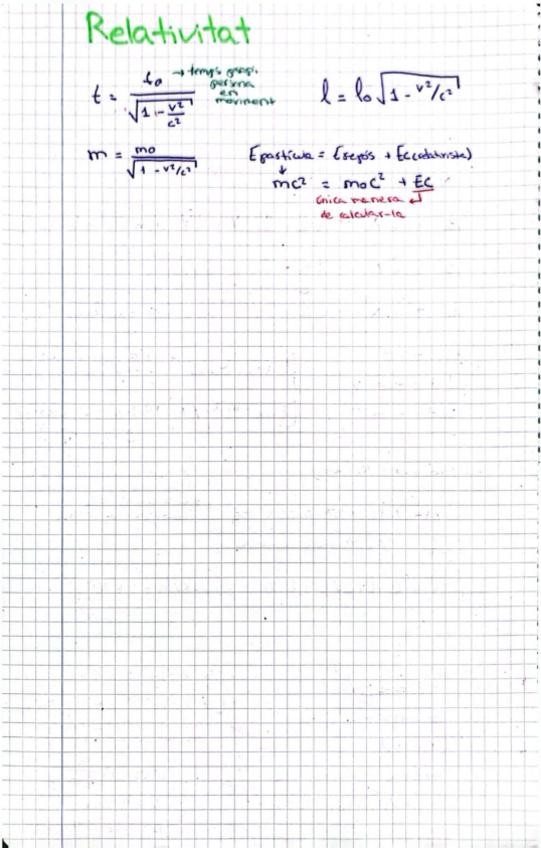 Relativitat
t = t₀ / √(1 - v²/c²) → temps propi persona en moviment
l = l₀ √(1 - v²/c²)
m = m₀ / √(1 - v²/c²)
Epartícula = Erepòs + Ec(relativista)
↓
mc² = m₀c² + Ec
única manera ↲
de calcular-la